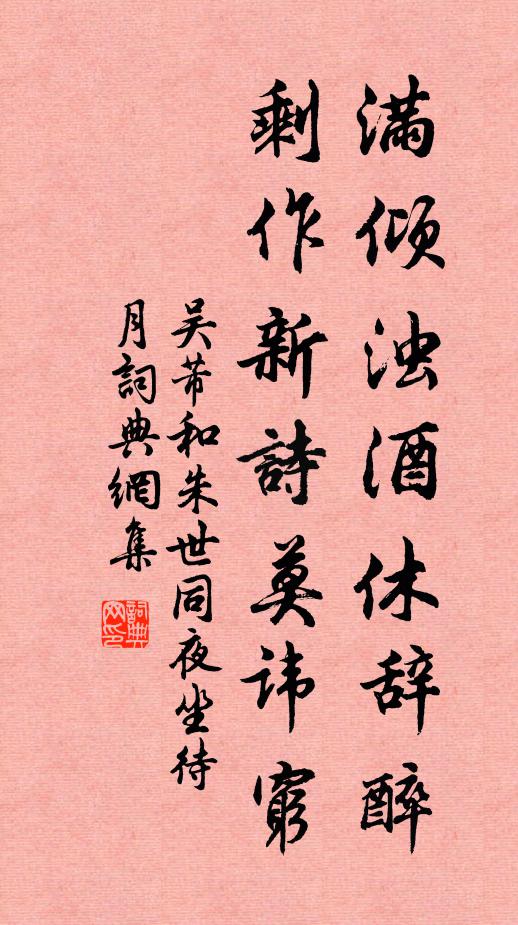 满倾浊酒休辞醉
剩作新詩莫讳窮
吴芾和朱世同夜坐待
月詞典網集
詞典
网印